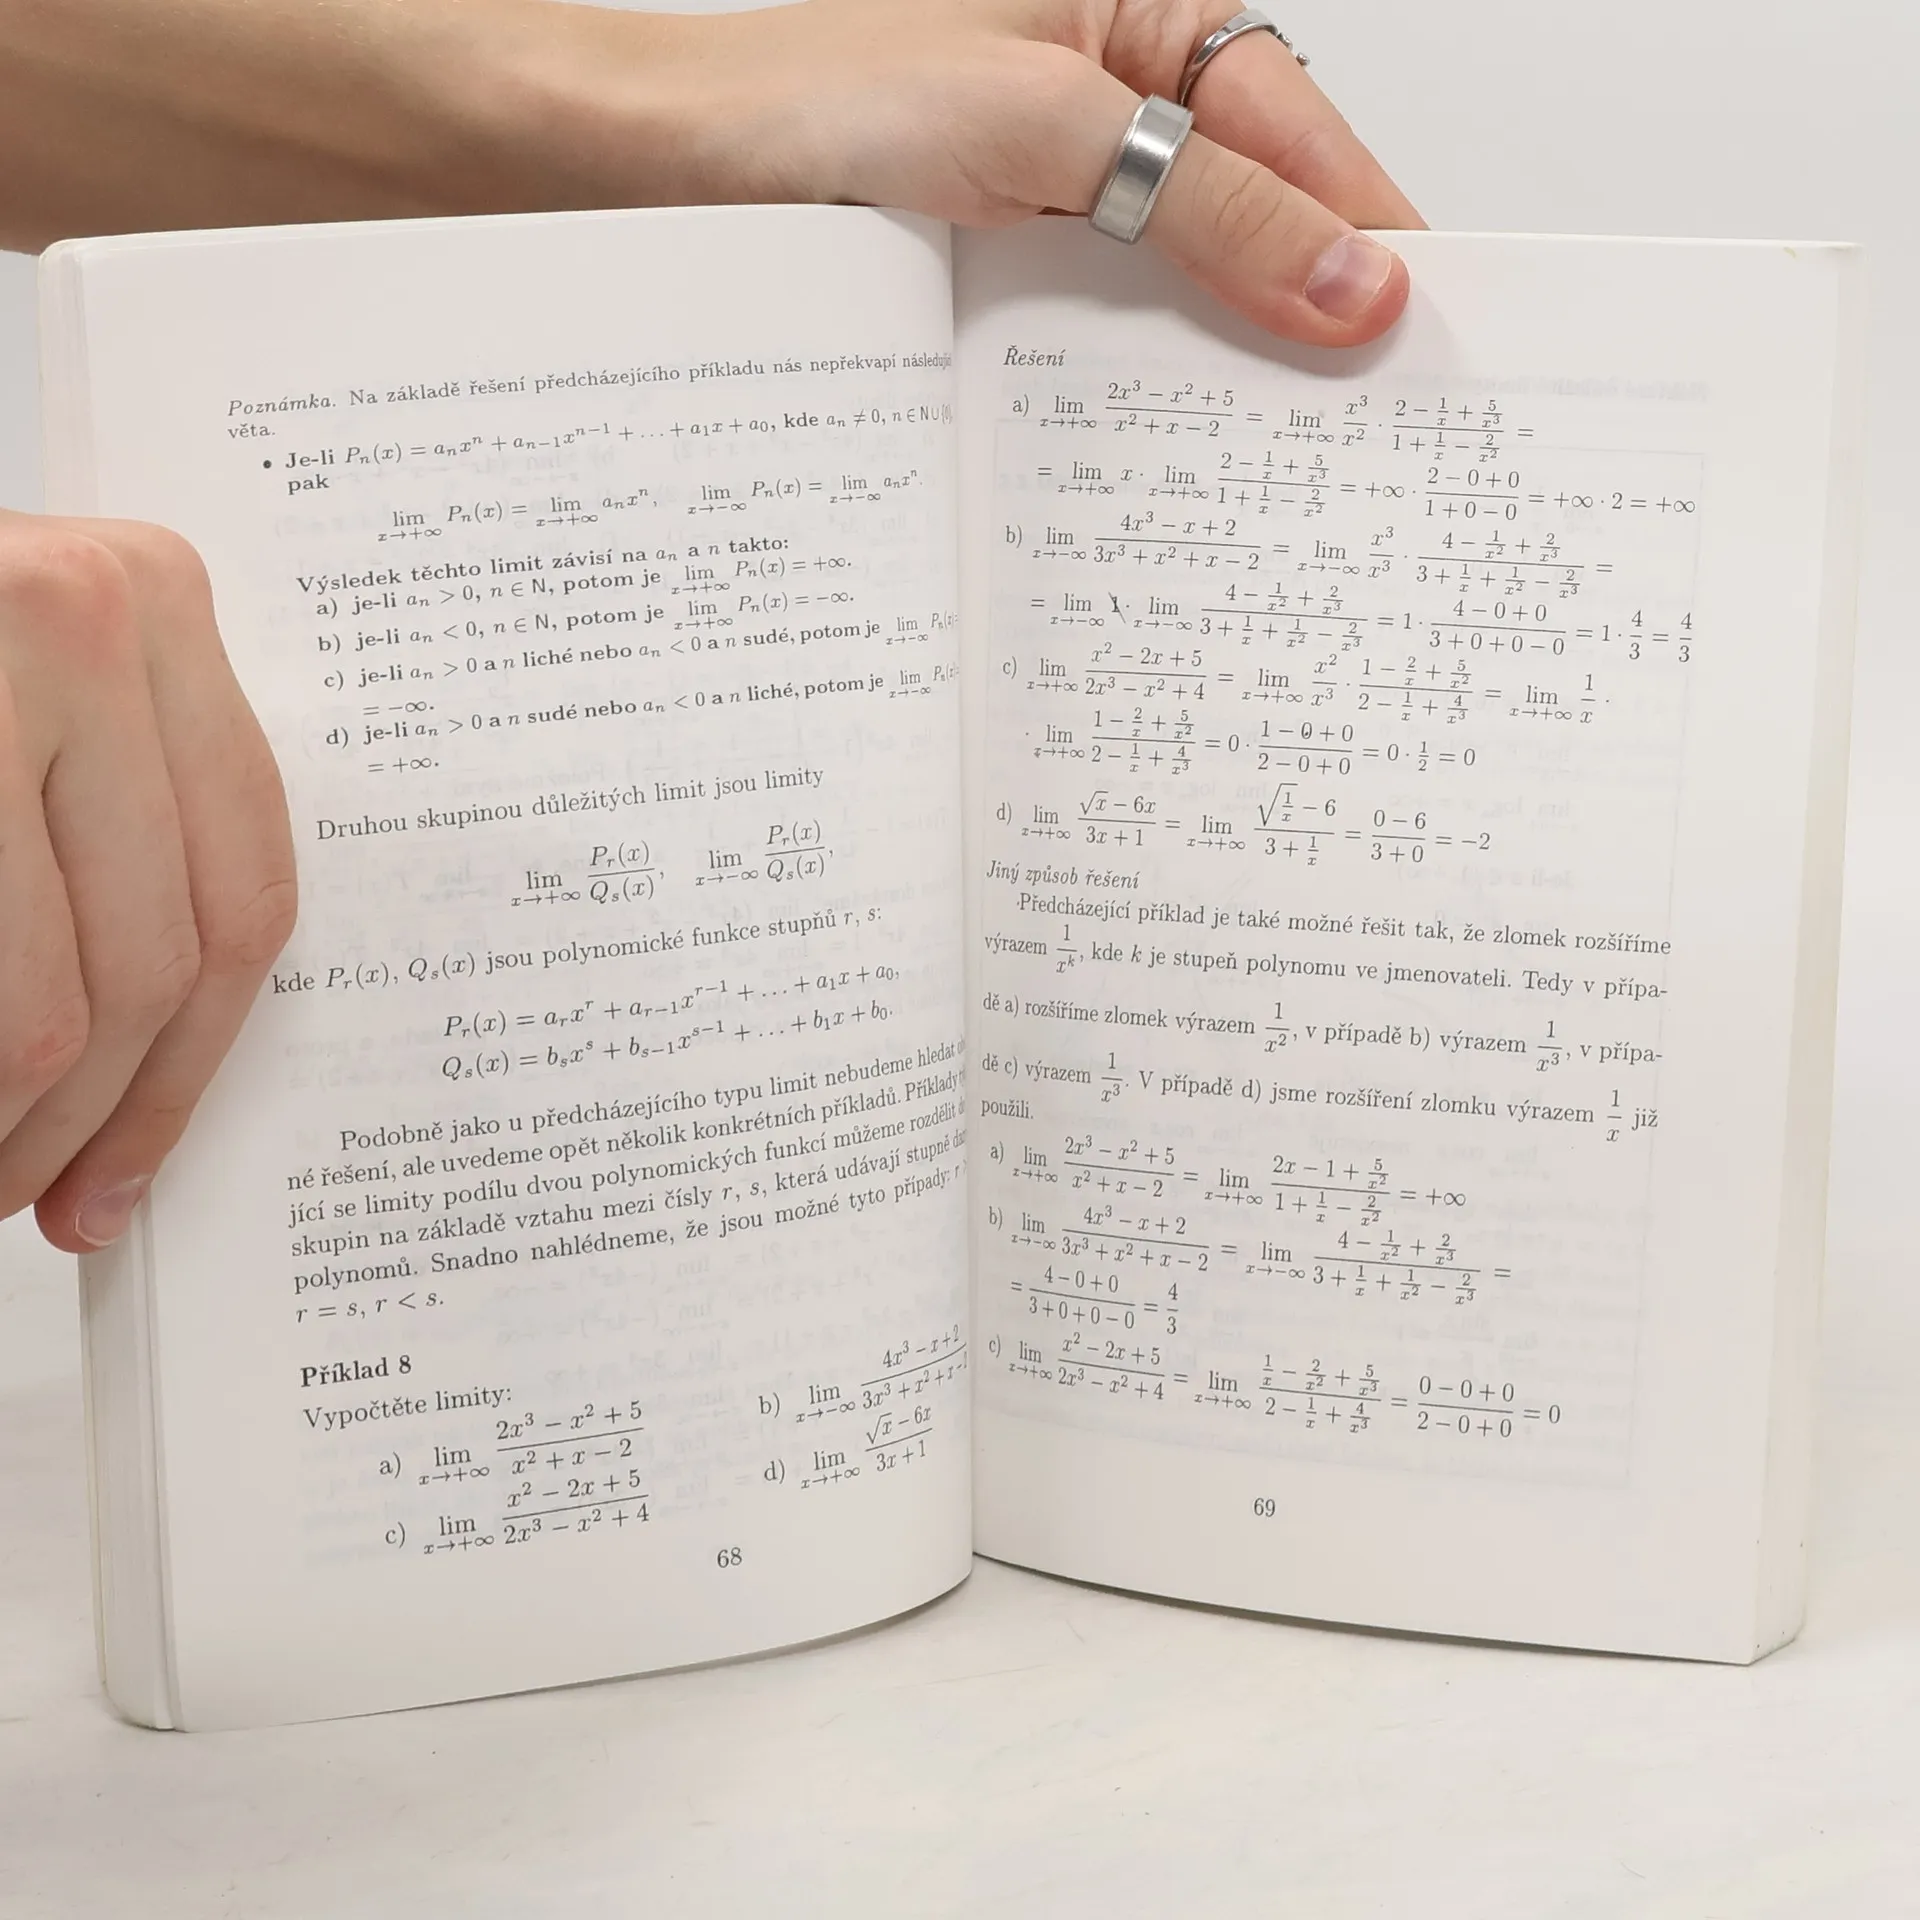 Poznámka. Na základě řešení předcházejícího příkladu nás nepřekvapí
věta.
• Je-li Pₙ(x) = aₙxⁿ + aₙ₋₁xⁿ⁻¹ + … + a₁x + a₀, kde aₙ ≠ 0, n ∈ N ∪ {0},
pak
lim_{x→+∞} Pₙ(x) = lim_{x→+∞} aₙxⁿ, lim_{x→−∞} Pₙ(x) = lim_{x→−∞} aₙxⁿ.
Výsledek těchto limit závisí na aₙ a n takto:
a) je-li aₙ > 0, n ∈ N, potom je lim_{x→+∞} Pₙ(x) = +∞.
b) je-li aₙ < 0, n ∈ N, potom je lim_{x→+∞} Pₙ(x) = −∞.
c) je-li aₙ > 0 a n liché nebo aₙ < 0 a n sudé, potom je lim_{x→−∞} Pₙ(x) =
= −∞.
d) je-li aₙ > 0 a n sudé nebo aₙ < 0 a n liché, potom je lim_{x→−∞} Pₙ(x) =
= +∞.
Druhou skupinou důležitých limit jsou limity
lim_{x→+∞} Pᵣ(x)/Qₛ(x), lim_{x→−∞} Pᵣ(x)/Qₛ(x),
kde Pᵣ(x), Qₛ(x) jsou polynomické funkce stupňů r, s:
Pᵣ(x) = aᵣxʳ + aᵣ₋₁xʳ⁻¹ + … + a₁x + a₀,
Qₛ(x) = bₛxˢ + bₛ₋₁xˢ⁻¹ + … + b₁x + b₀.
Podobně jako u předcházejícího typu limit nebudeme hledat
né řešení, ale uvedeme opět několik konkrétních příkladů. Příklady
jící se limity podílu dvou polynomických funkcí můžeme rozdělit
skupin na základě vztahu mezi čísly r, s, která udávají stupně
polynomů. Snadno nahlédneme, že jsou možné tyto případy:
r = s, r < s.
Příklad 8
Vypočtěte limity:
a) lim_{x→+∞} (2x³ − x² + 5)/(x² + x − 2) b) lim_{x→−∞} (4x³ − x + 2)/(3x³ + x² + x −
c) lim_{x→+∞} (x² − 2x + 5)/(2x³ − x² + 4) d) lim_{x→+∞} (√x − 6x)/(3x + 1)
68
Řešení
a) lim_{x→+∞} (2x³ − x² + 5)/(x² + x − 2) = lim_{x→+∞} x³/x² · (2 − 1/x + 5/x³)/(1 + 1/x − 2/x²) =
= lim_{x→+∞} x · lim_{x→+∞} (2 − 1/x + 5/x³)/(1 + 1/x − 2/x²) = +∞ · (2 − 0 + 0)/(1 + 0 − 0) = +∞ · 2 = +∞
b) lim_{x→−∞} (4x³ − x + 2)/(3x³ + x² + x − 2) = lim_{x→−∞} x³/x³ · (4 − 1/x² + 2/x³)/(3 + 1/x + 1/x² − 2/x³) =
= lim_{x→−∞} 1 · lim_{x→−∞} (4 − 1/x² + 2/x³)/(3 + 1/x + 1/x² − 2/x³) = 1 · (4 − 0 + 0)/(3 + 0 + 0 − 0) = 1 · 4/3 = 4/3
c) lim_{x→+∞} (x² − 2x + 5)/(2x³ − x² + 4) = lim_{x→+∞} x²/x³ · (1 − 2/x + 5/x²)/(2 − 1/x + 4/x³) = lim_{x→+∞} 1/x ·
· lim_{x→+∞} (1 − 2/x + 5/x²)/(2 − 1/x + 4/x³) = 0 · (1 − 0 + 0)/(2 − 0 + 0) = 0 · 1/2 = 0
d) lim_{x→+∞} (√x − 6x)/(3x + 1) = lim_{x→+∞} (√(1/x) − 6)/(3 + 1/x) = (0 − 6)/(3 + 0) = −2
Jiný způsob řešení
Předcházející příklad je také možné řešit tak, že zlomek rozšíříme
výrazem 1/xᵏ, kde k je stupeň polynomu ve jmenovateli. Tedy v přípa-
dě a) rozšíříme zlomek výrazem 1/x², v případě b) výrazem 1/x³, v přípa-
dě c) výrazem 1/x³. V případě d) jsme rozšíření zlomku výrazem 1/x již
použili.
a) lim_{x→+∞} (2x³ − x² + 5)/(x² + x − 2) = lim_{x→+∞} (2x − 1 + 5/x²)/(1 + 1/x − 2/x²) = +∞
b) lim_{x→−∞} (4x³ − x + 2)/(3x³ + x² + x − 2) = lim_{x→−∞} (4 − 1/x² + 2/x³)/(3 + 1/x + 1/x² − 2/x³) =
= (4 − 0 + 0)/(3 + 0 + 0 − 0) = 4/3
c) lim_{x→+∞} (x² − 2x + 5)/(2x³ − x² + 4) = lim_{x→+∞} (1/x − 2/x² + 5/x³)/(2 − 1/x + 4/x³) = (0 − 0 + 0)/(2 − 0 + 0) = 0
69